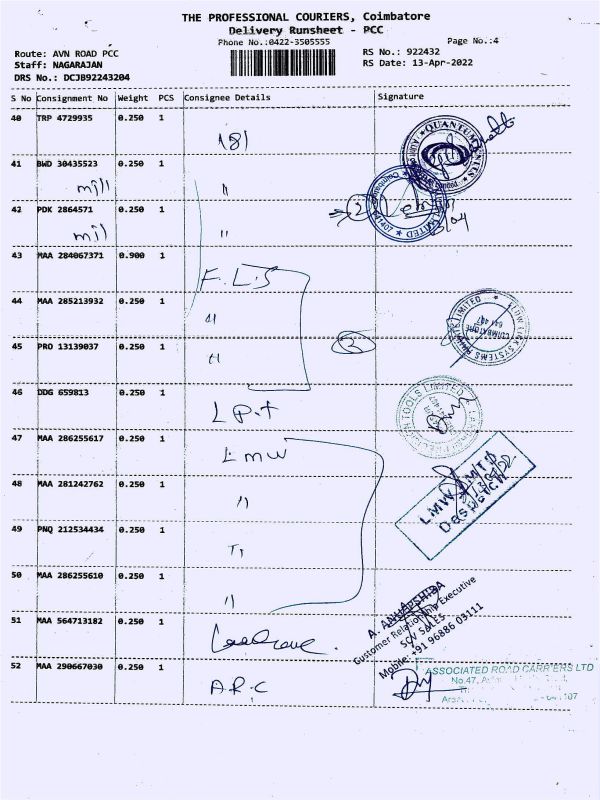 THE PROFESSIONAL COURIERS, Coimbatore
Delivery Runsheet - PCC
Phone No.:0422-3505555
Page No.:4
Route: AVN ROAD PCC
Staff: NAGARAJAN
DRS No.: DCJB92243204
RS No.: 922432
RS Date: 13-Apr-2022
S No Consignment No Weight PCS Consignee Details Signature
40 TRP 4729935 0.250 1
181
QUANTUM
41 BWD 30435523 0.250 1
mill "
42 PDK 2864571 0.250 1
mil "
2
641407 LIMITED
43 MAA 284067371 0.900 1
F.L.S
44 MAA 285213932 0.250 1
"
FLOW LINK SYSTEMS PRIVATE LIMITED
COIMBATORE
641 407
45 PRO 13139037 0.250 1
"
3
46 DDG 659813 0.250 1
L P T
TOOLS LIMITED
47 MAA 286255617 0.250 1
LMW
LMW MTD
48 MAA 281242762 0.250 1
"
49 PNQ 212534434 0.250 1
"
50 MAA 286255610 0.250 1
"
51 MAA 564713182 0.250 1
A. ANUPSHIBA
Customer Relationship Executive
SGV SALES
Mobile: +91 96886 03111
52 MAA 290667030 0.250 1
A.R.C
ASSOCIATED ROAD CARRIERS LTD
No.47,